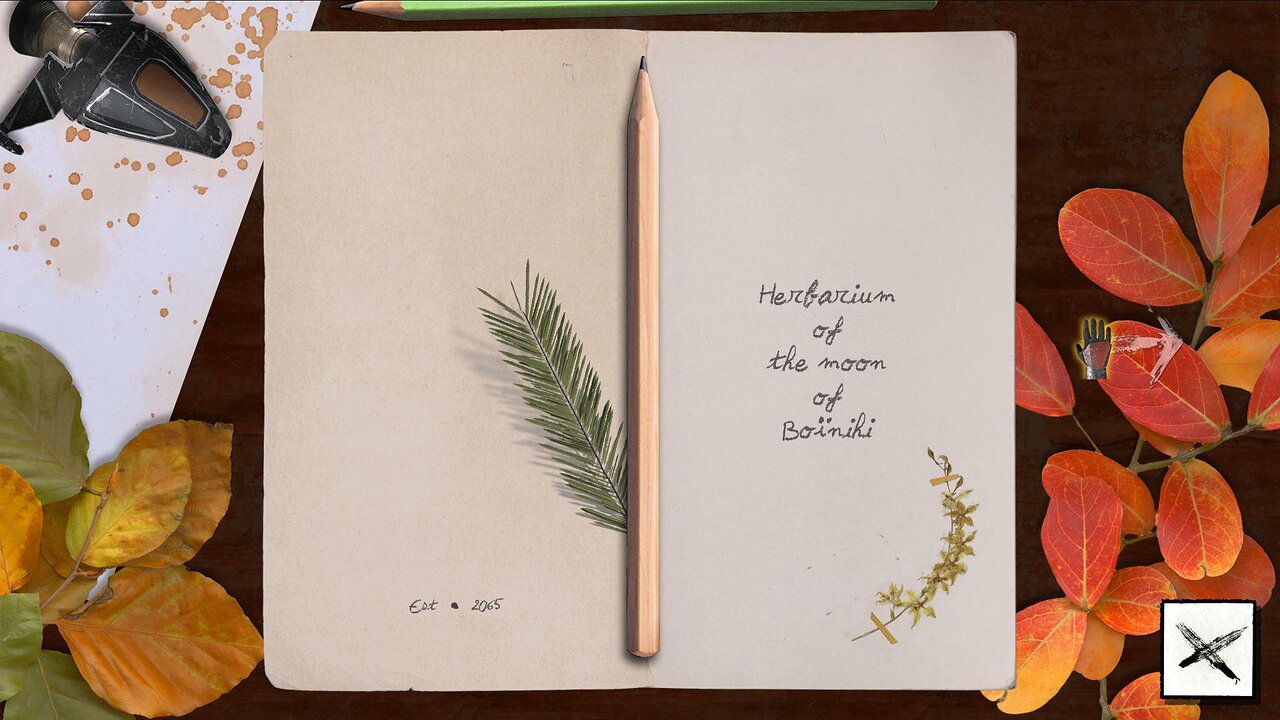 Est • 2065
Herbarium
of
the moon
of
Boïniki